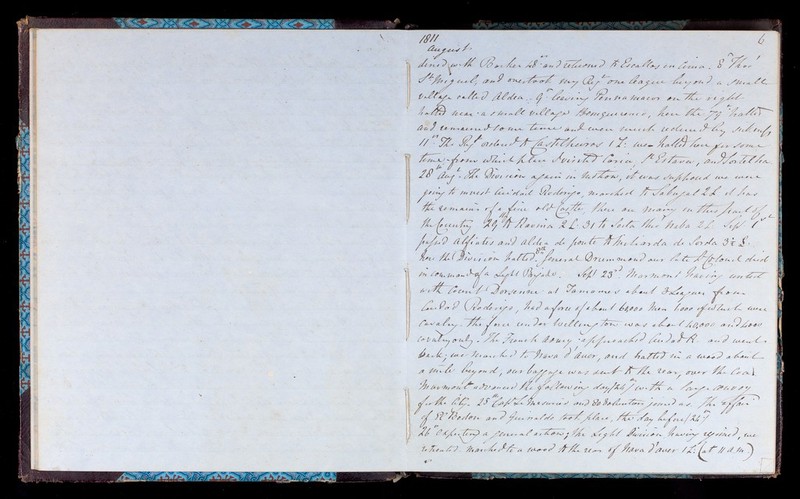 1811 6
August
dined with Barker 28th and returned to Escallos in Cima. 8th Thro'
St Miguel, and one league beyond a small
village called Aldea. 9th leaving Pennamacor on the right
halted near a small village here the 79th halted
and remained some time and were much reduced by sickness
11th The Regt ordered to 1 L: we halted here for some
time from which place I visited Coria, St Estavan, and
28th Augt. The Division again in motion, it was supposed we were
going to invest Ciudad Rodrigo, marched to Sabugal 2 L it has
the remains of a fine old Castle, there are many in this part of
the Country 29th to 2 L. 31st to 2 L. Sept 1st
passed Alfaiates and Aldea de ponte to 3 L
here the Division halted. 8th General Drummond our late Lt Colonel died
in command of a Light Brigade. Sept 23rd Marmont having united
with Count Dorsenne at Tamames about 8 Leagues from
Ciudad Rodrigo, had a force of about 60,000 Men of which were
cavalry. the force under Wellington was about 40,000 and 4000
cavalry only. The French army approached Ciudad R. and went
back; we marched to Nava d'aver, and halted in a wood about
a mile beyond, our baggage was sent to the rear, over the Coa.
Marmont advanced the following day (24th) with a large
for the City. 25th Capt and joined us. The affair
of El Bodon and Guinaldo took place, the day before (24th)
26th expecting a general action; the Light Division having rejoined, we
retreated. marched to a wood to the rear of Nava d'aver 1 L. (at 11 a.m.)